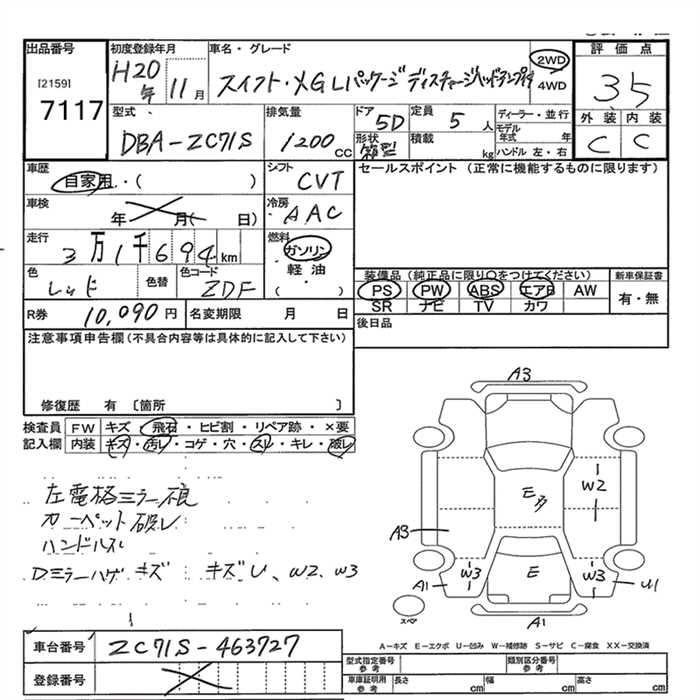 出品番号
[2159]
7117
初度登録年月
H20年 11月
車名・グレード
スイフト・XG Lパッケージ ディスチャージヘッドランプ付
2WD
4WD
評価点
3.5
外装 内装
C C
型式
DBA-ZC71S
排気量
1200 CC
ドア
5D
形状
箱型
定員
5 人
積載
kg
ディーラー・並行
モデル年式 年
ハンドル 左・右
車歴
自家用・( )
シフト
CVT
車検
年 月( 日)
冷房
AAC
走行
3万1千694km
燃料
ガソリン
・
軽油
( )
色
レッド
色替
色コード
ZDF
R券 10,090円
名変期限 月 日
セールスポイント (正常に機能するものに限ります)
装備品(純正品に限り○をつけてください)
新車保証書
PS PW ABS エアB AW
SR ナビ TV カワ
有・無
後日品
注意事項申告欄(不具合内容等は具体的に記入して下さい)
修復歴 有 〔箇所 〕
検査員記入欄
FW キズ・飛石・ヒビ割・リペア跡・×要
内装 キズ・汚レ・コゲ・穴・スレ・キレ・破レ
左電格ミラー痕
カーペット破レ
ハンドルスレ
Dミラーハゲキズ キズU、W2、W3
A3
W2
E多
A3
W3
E
W3
A1
U1
A1
スペア
A-キズ E-エクボ U-凹み W-補修跡 S-サビ C-腐食 XX-交換済
車台番号 ZC71S-463727
登録番号
型式指定番号 参考
類別区分番号 参考
車庫証明用 参考
長さ cm 幅 cm 高さ cm